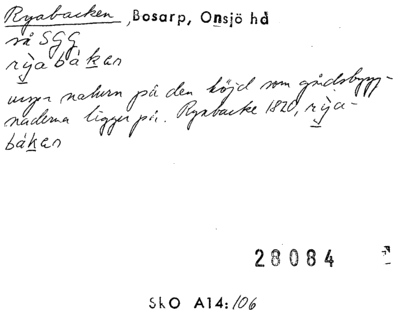 Ryabacken, Bosarp, Onsjö hd
så SGG
rỳabákan
namn på den höjd som gårdsbygg-
naderna ligger på. Ryabacke 1820, rỳja-
bákan
28084
SkO A14:106